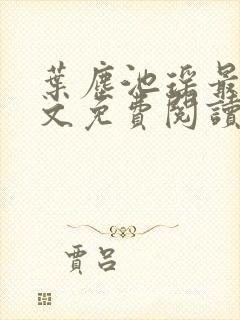 葉塵池瑤最
文免費閱讀
賈呂